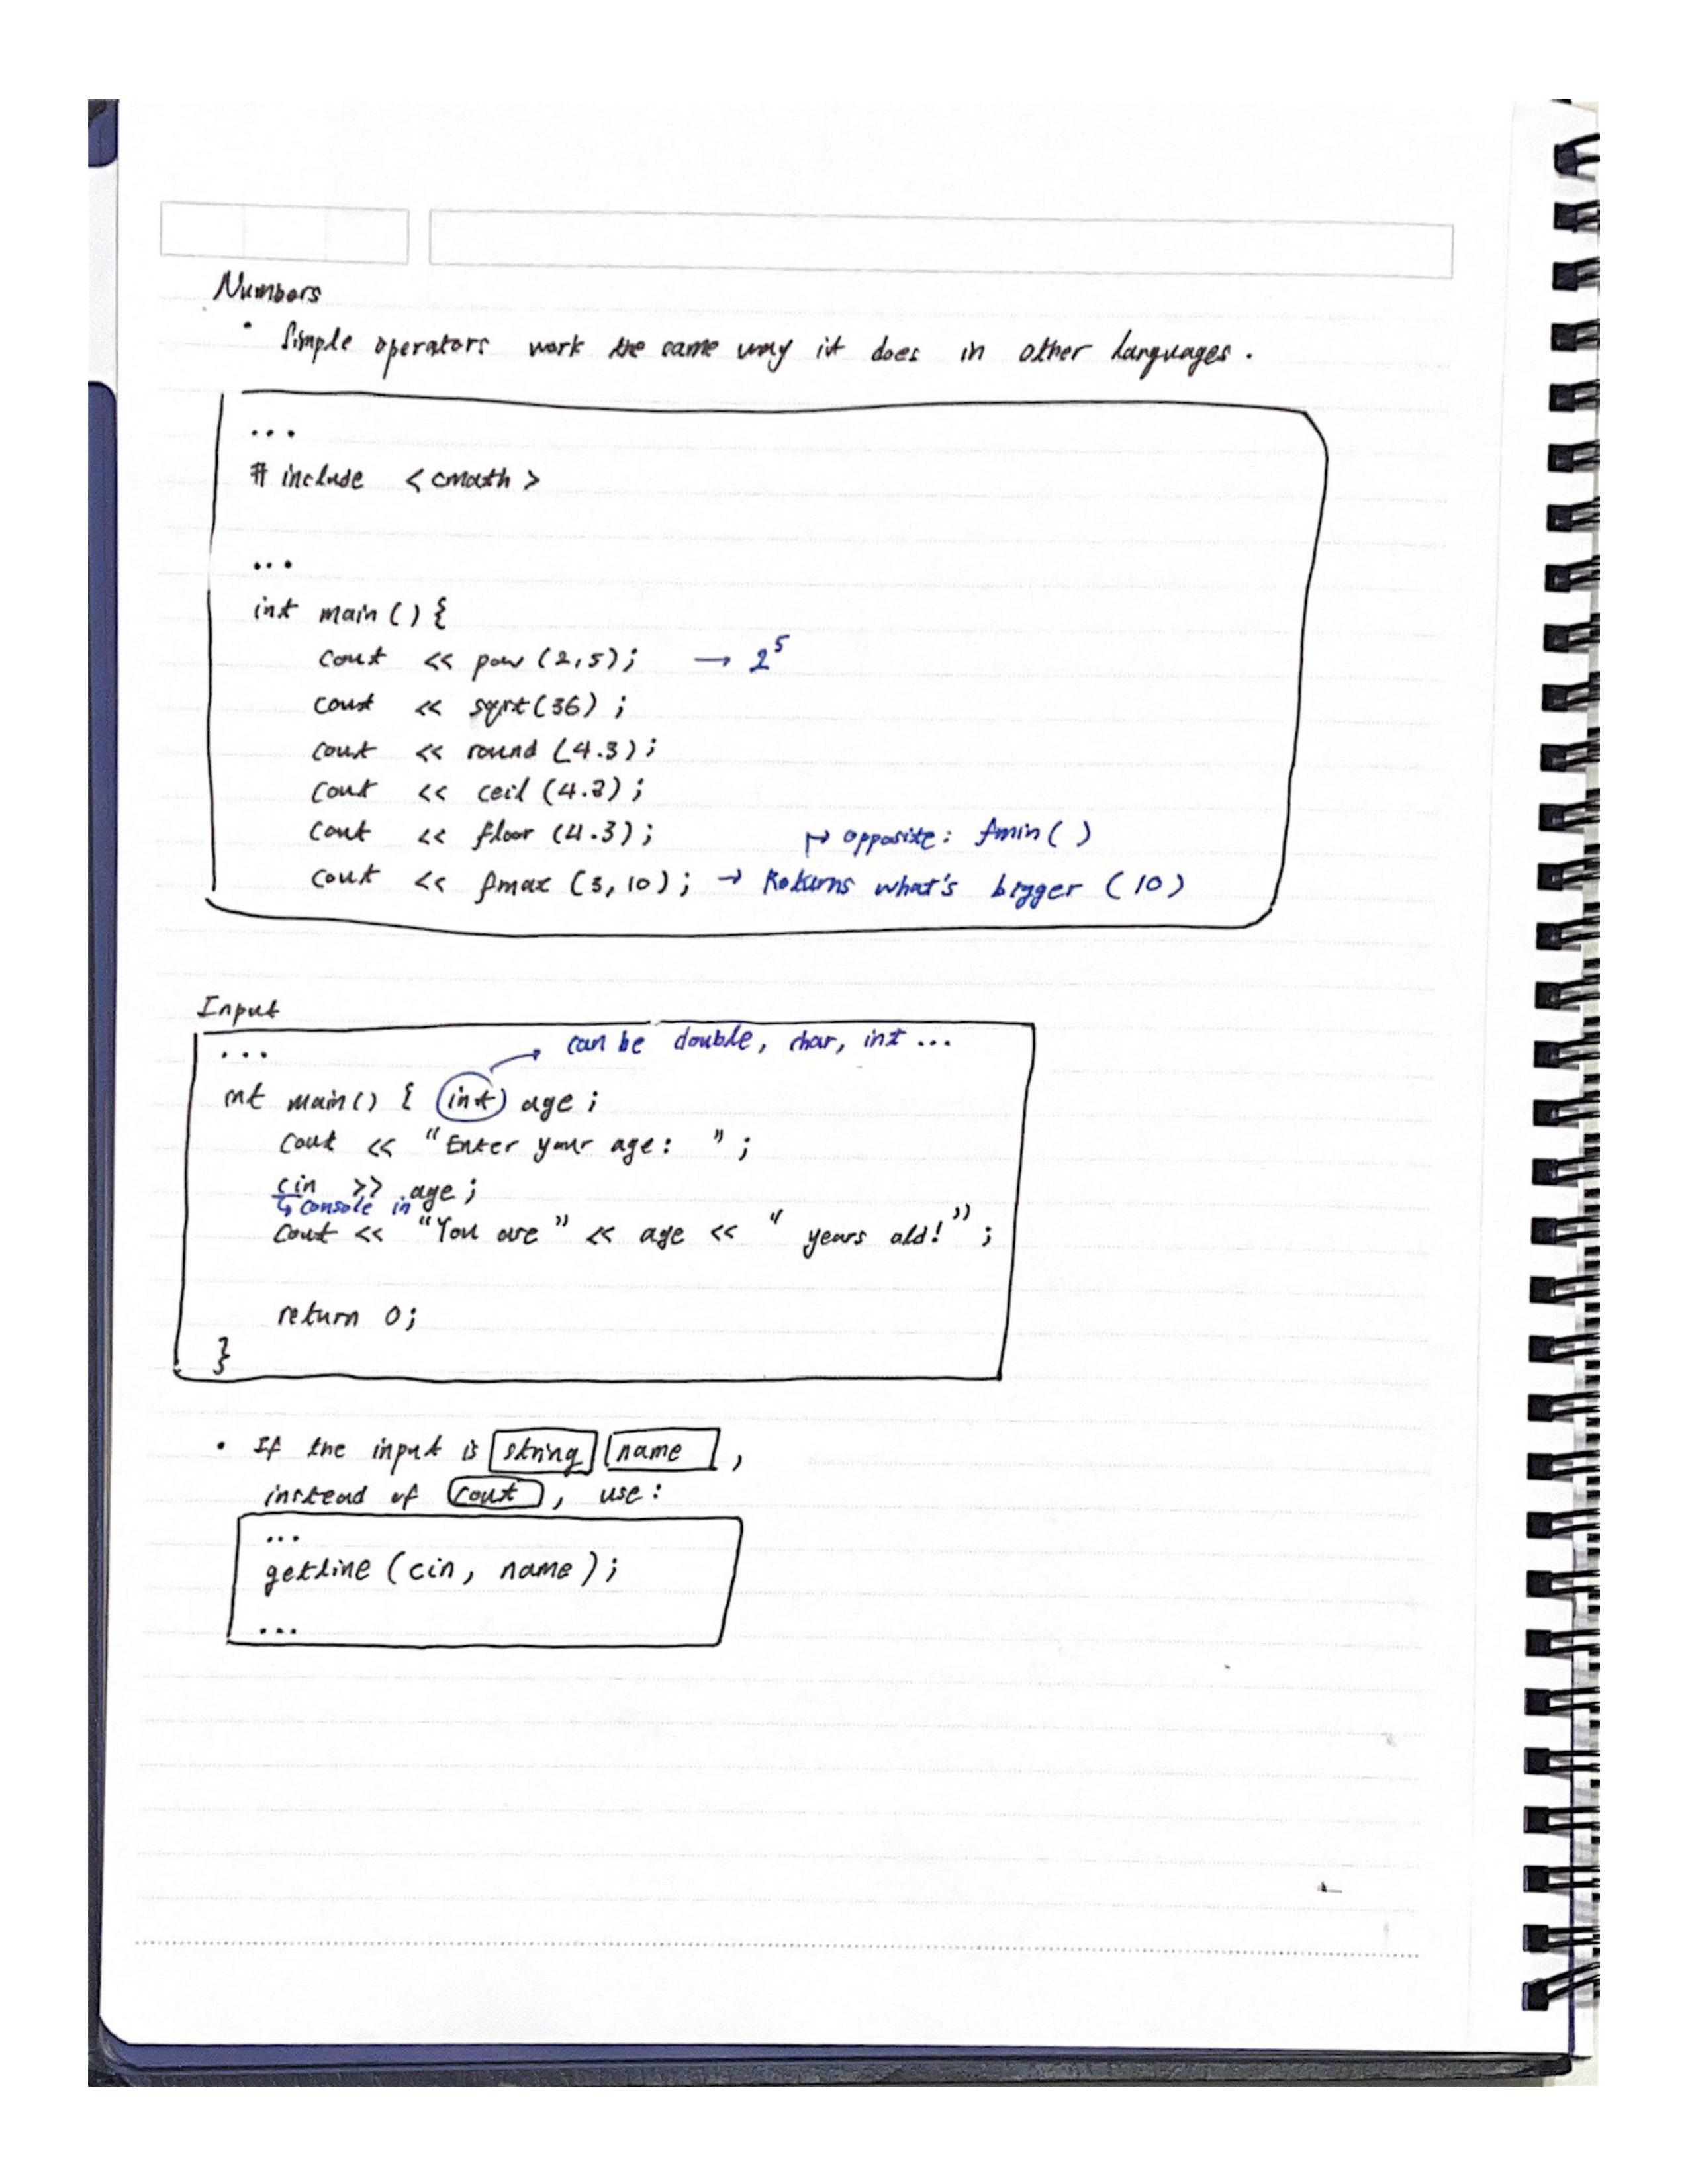 Numbers
• Simple operators work the same way it does in other languages.
...
# include <cmath>
...
int main() {
cout << pow (2,5); → 2⁵
cout << sqrt(36) ;
cout << round (4.3);
cout << ceil (4.3);
cout << floor (4.3);
↦ opposite: fmin( )
cout << fmax (3, 10) ; → Returns what's bigger (10)
Input
can be double, char, int ...
...
int main() { int age ;
cout << "Enter your age: " ;
cin >> age ;
↳ console in
cout << "You are " << age << " years old!" ;
return 0;
}
• If the input is string name ,
instead of cout , use :
...
getline (cin, name) ;
...